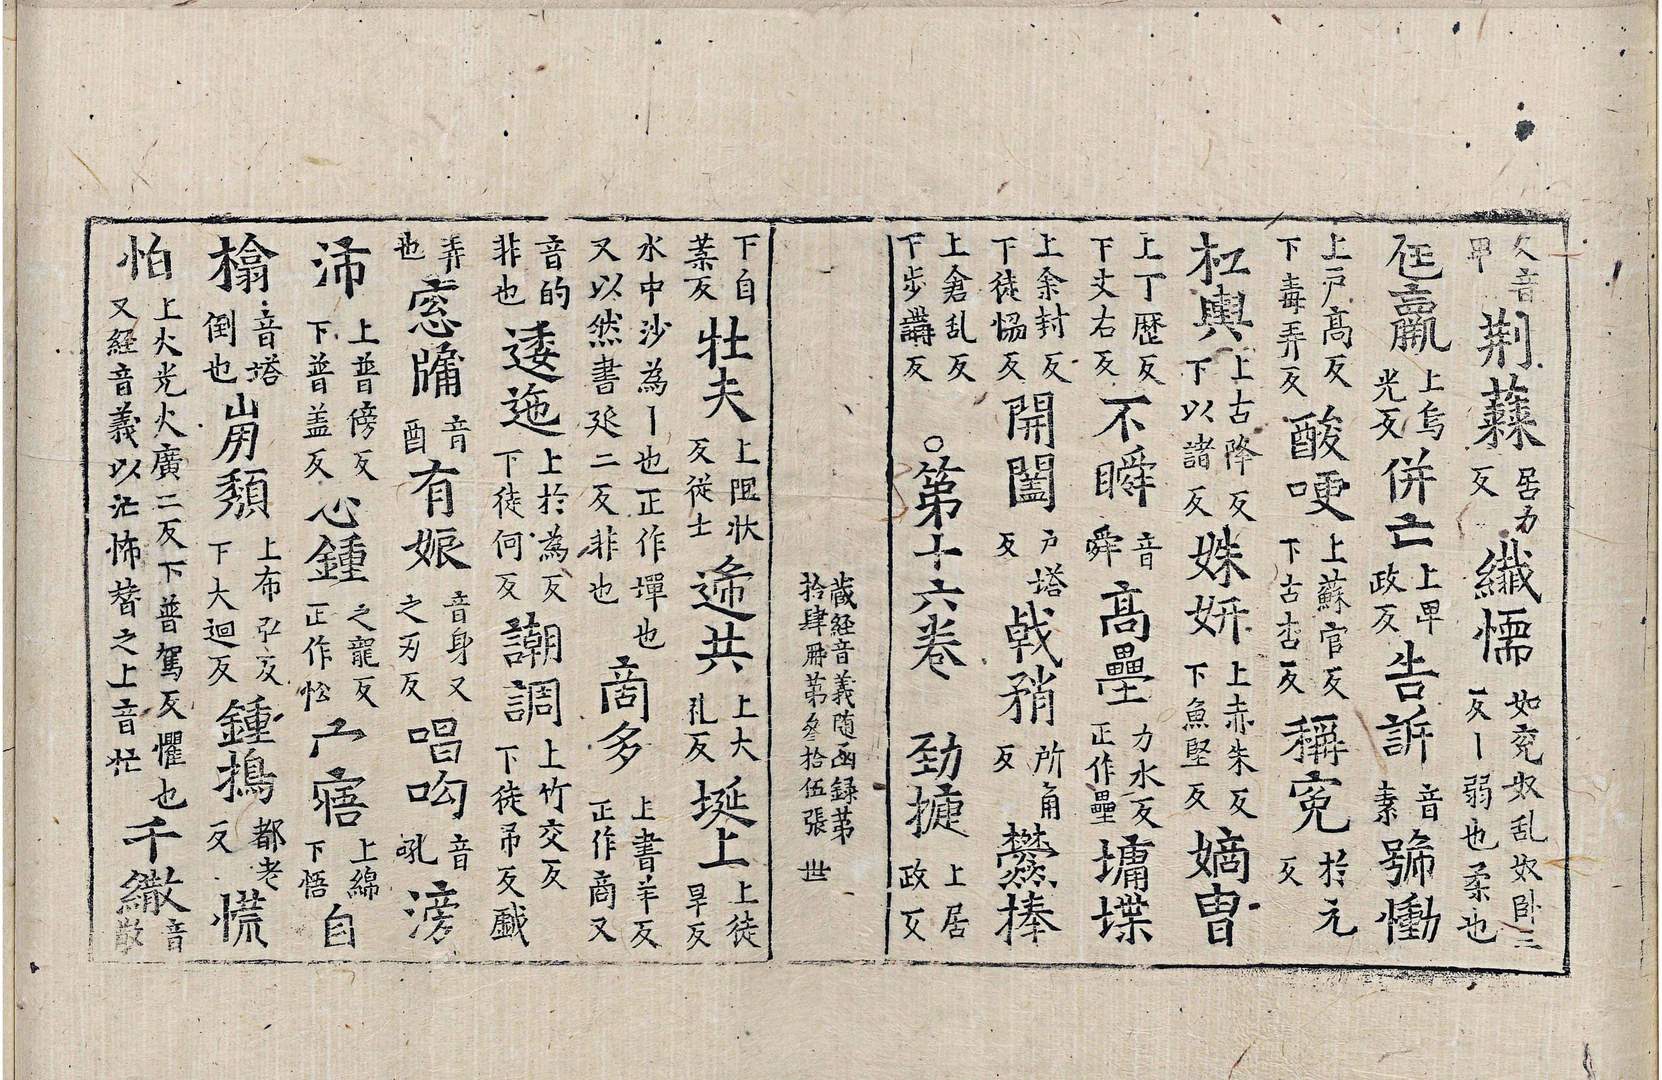 文音甲荆蕀居力反纎懦如兖奴乱奴卧三反丨弱也柔也
尪羸上烏光反併亡上毕政反告訴音素號慟
上戸髙反下毒弄反酸哽上蘇官反下古杏反稱寃於元反
杠輿上古降反下以諸反姝妍上赤朱反下魚堅反嫡胄
上丁歷反下丈右反不瞬音舜髙壘力水反正作壘墉堞
上余封反下徒恊反開闔戸塔反戟矟所角反爨捧
上倉乱反下步講反○第十六卷勁揵上居政反
藏経音義随函録第拾肆冊第叄拾伍張 世
下自葉反牡夫上阻状反從士遆共上大孔反埏上上徒旱反
水中沙為丨也正作墠也又以然書延二反非也啇多上書羊反正作商又
音的非也逶迤上於為反下徒何反謿調上竹交反下徒吊反戱
弄也窓牖音酉有娠音身又之刃反唱吻音吼滂
沛上普傍反下普盖反心鍾之寵反正作忪宀寤上綿下悟自
㯓音塔倒也崩頽上布弘反下大迴反鍾搗都老反慌
怕上火光火廣二反下普駕反懼也又経音義以汒怖替之上音忙千繖音散